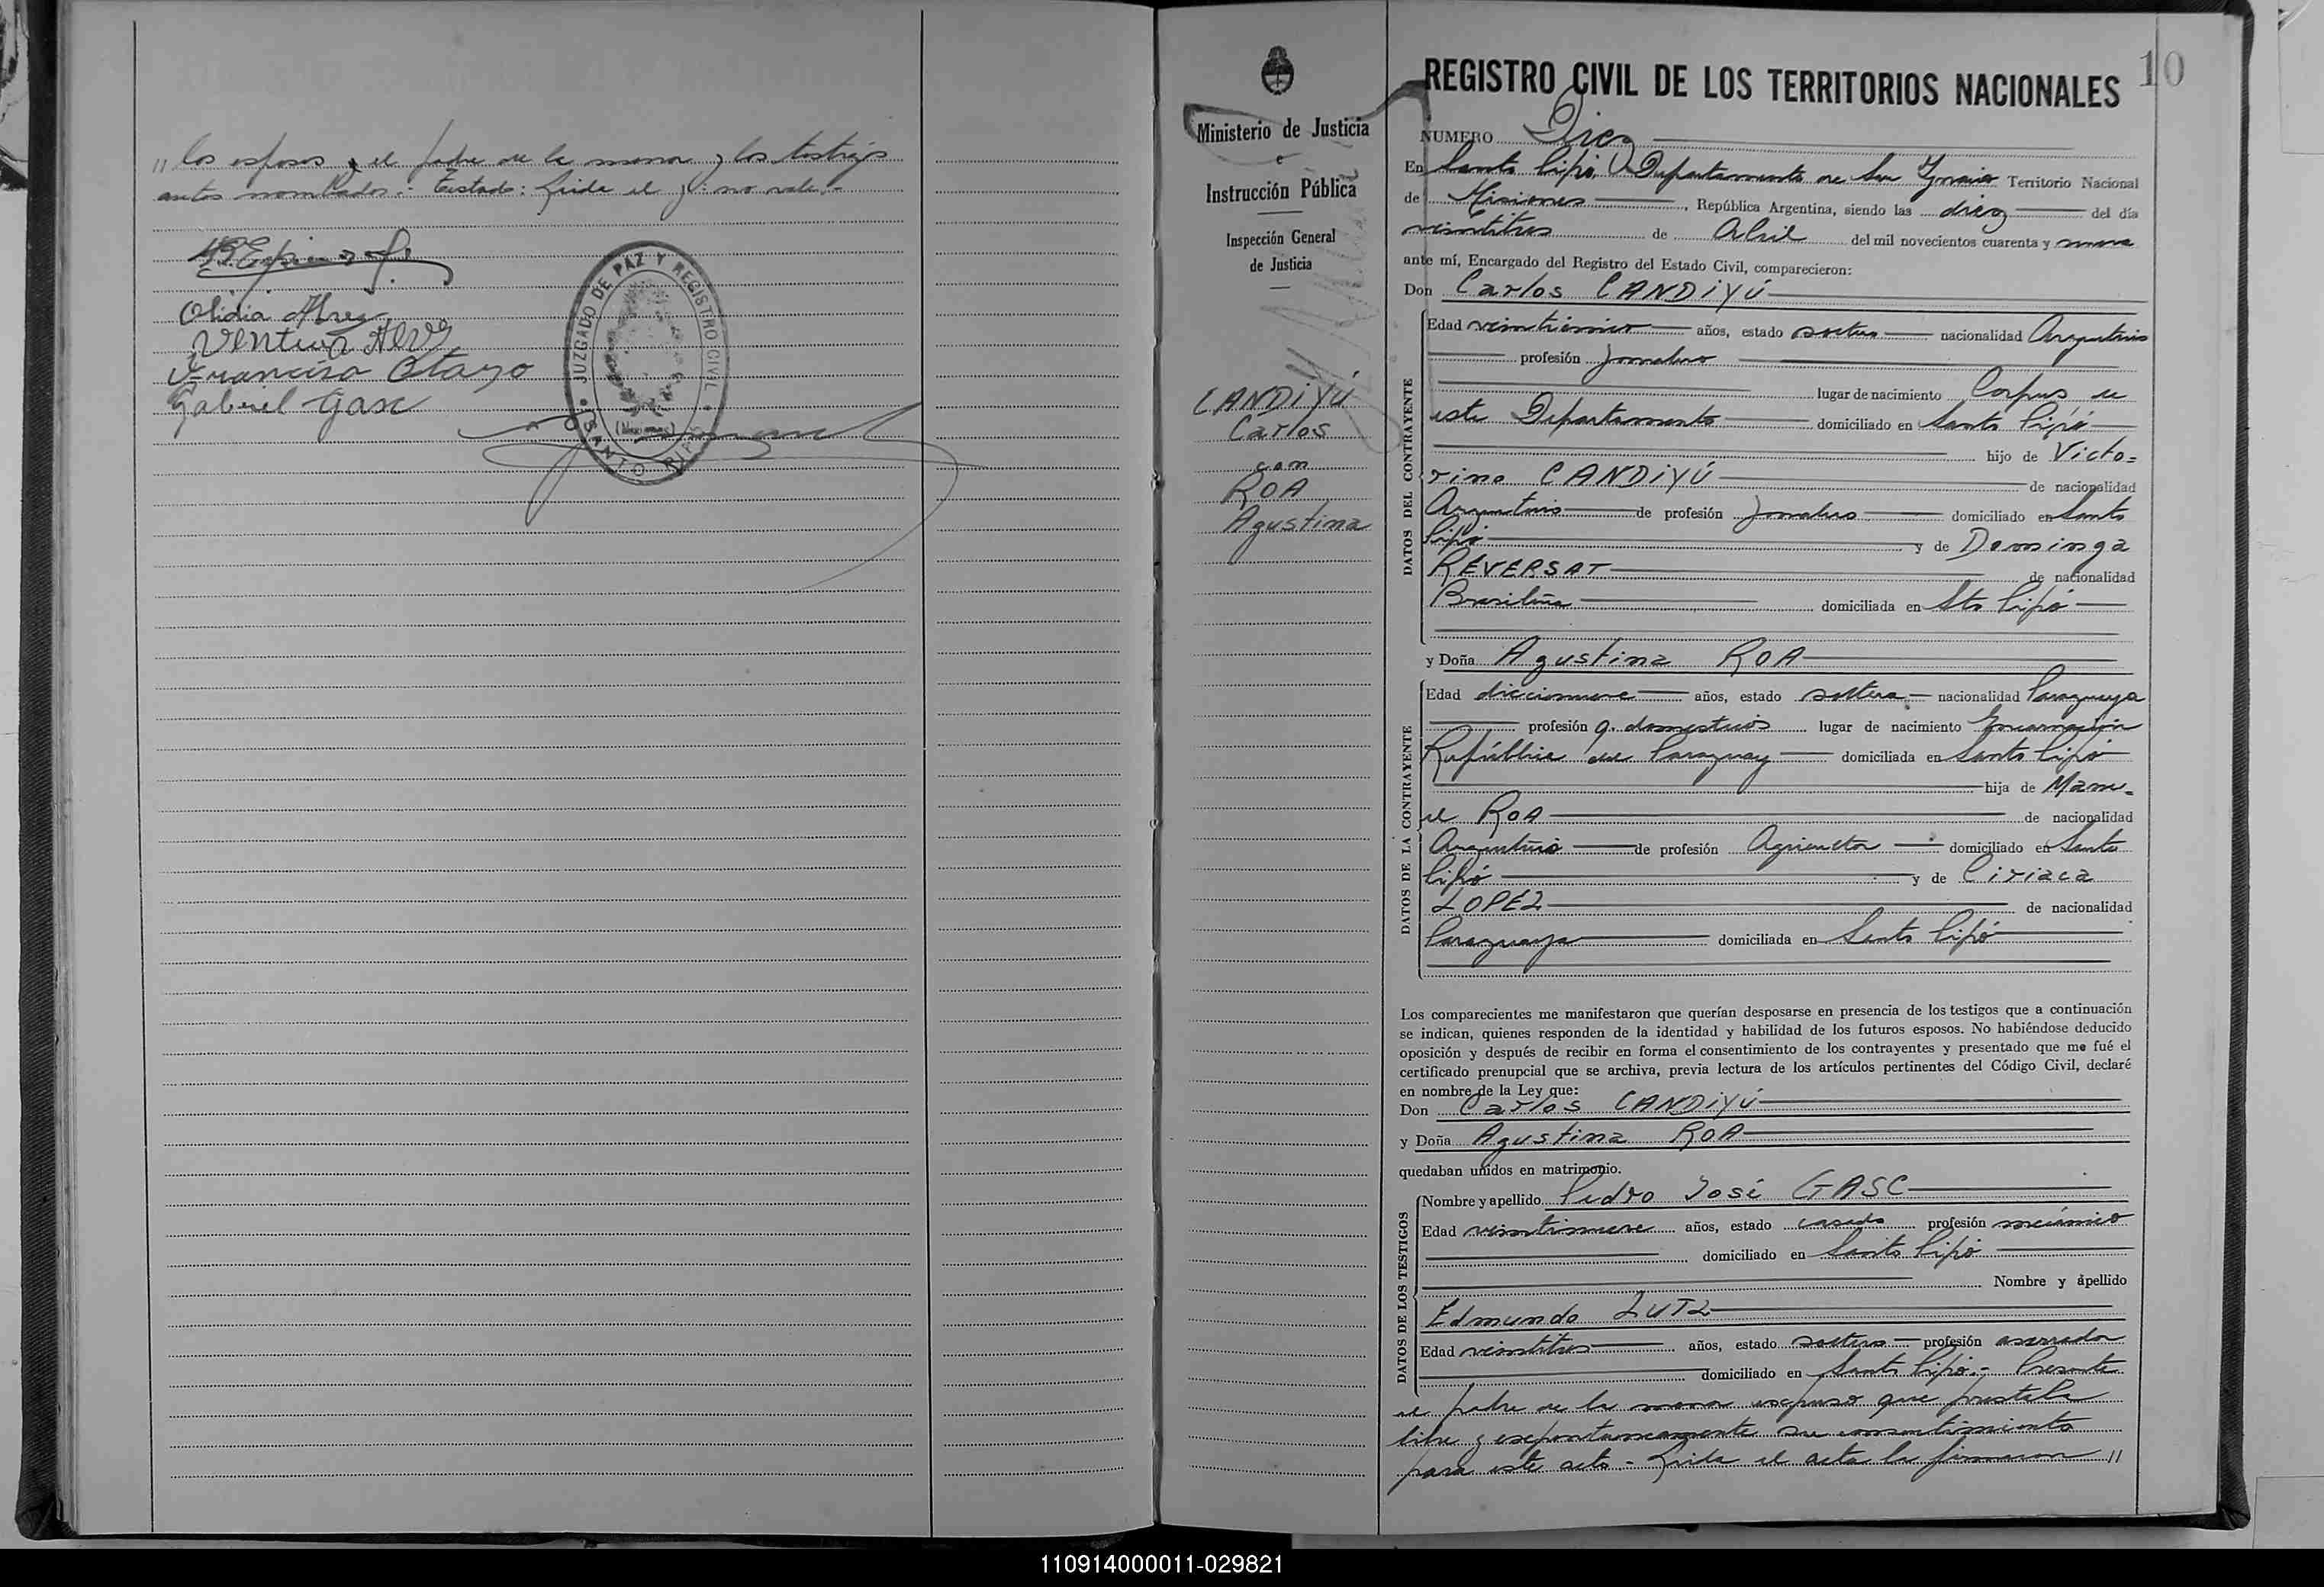 " los esposos y el padre de la menor y los testigos
antes nombrados.- Testado: Leida el y: no vale.-
Olidia Abreg
Ventura Alves
Francisco Otazo
Gabriel Gasc
JUZGADO DE PAZ Y REGISTRO CIVIL
SANTO PIPÓ
(Misiones)
Ministerio de Justicia
e
Instrucción Pública
Inspección General
de Justicia
CANDIYÚ
Carlos
con
ROA
Agustina
10
REGISTRO CIVIL DE LOS TERRITORIOS NACIONALES
NUMERO Diez
En Santo Pipó, Departamento de San Ignacio Territorio Nacional
de Misiones, República Argentina, siendo las diez del día
veintitres de Abril del mil novecientos cuarenta y nueve
ante mí, Encargado del Registro del Estado Civil, comparecieron:
Don Carlos CANDIYÚ
DATOS DEL CONTRAYENTE
Edad veinticinco años, estado soltero nacionalidad Argentino
profesión Jornalero
lugar de nacimiento Corpus de
este Departamento domiciliado en Santo Pipó
hijo de Victo=
rino CANDIYÚ de nacionalidad
Argentino de profesión Jornalero domiciliado en Santo
Pipó y de Dominga
REVERSAT de nacionalidad
Brasileña domiciliada en Sto Pipó
y Doña Agustina ROA
DATOS DE LA CONTRAYENTE
Edad diecinueve años, estado soltera nacionalidad Paraguaya
profesión q. domesticos lugar de nacimiento Encarnación
República del Paraguay domiciliada en Santo Pipó
hija de Manu=
el ROA de nacionalidad
Argentino de profesión Agricultor domiciliado en Santo
Pipó y de Ciriaca
LOPEZ de nacionalidad
Paraguaya domiciliada en Santo Pipó
Los comparecientes me manifestaron que querían desposarse en presencia de los testigos que a continuación
se indican, quienes responden de la identidad y habilidad de los futuros esposos. No habiéndose deducido
oposición y después de recibir en forma el consentimiento de los contrayentes y presentado que me fué el
certificado prenupcial que se archiva, previa lectura de los artículos pertinentes del Código Civil, declaré
en nombre de la Ley que:
Don Carlos CANDIYÚ
y Doña Agustina ROA
quedaban unidos en matrimonio.
DATOS DE LOS TESTIGOS
Nombre y apellido Pedro José GASC
Edad veintinueve años, estado casado profesión mecánico
domiciliado en Santo Pipó
Nombre y apellido
Edmundo LUTZ
Edad veintitres años, estado soltero profesión aserrador
domiciliado en Santo Pipó.- Presente
el padre de la menor expuso que prestaba
libre y expontaneamente su consentimiento
para este acto.- Leida el acta la firmaron "
110914000011-029821